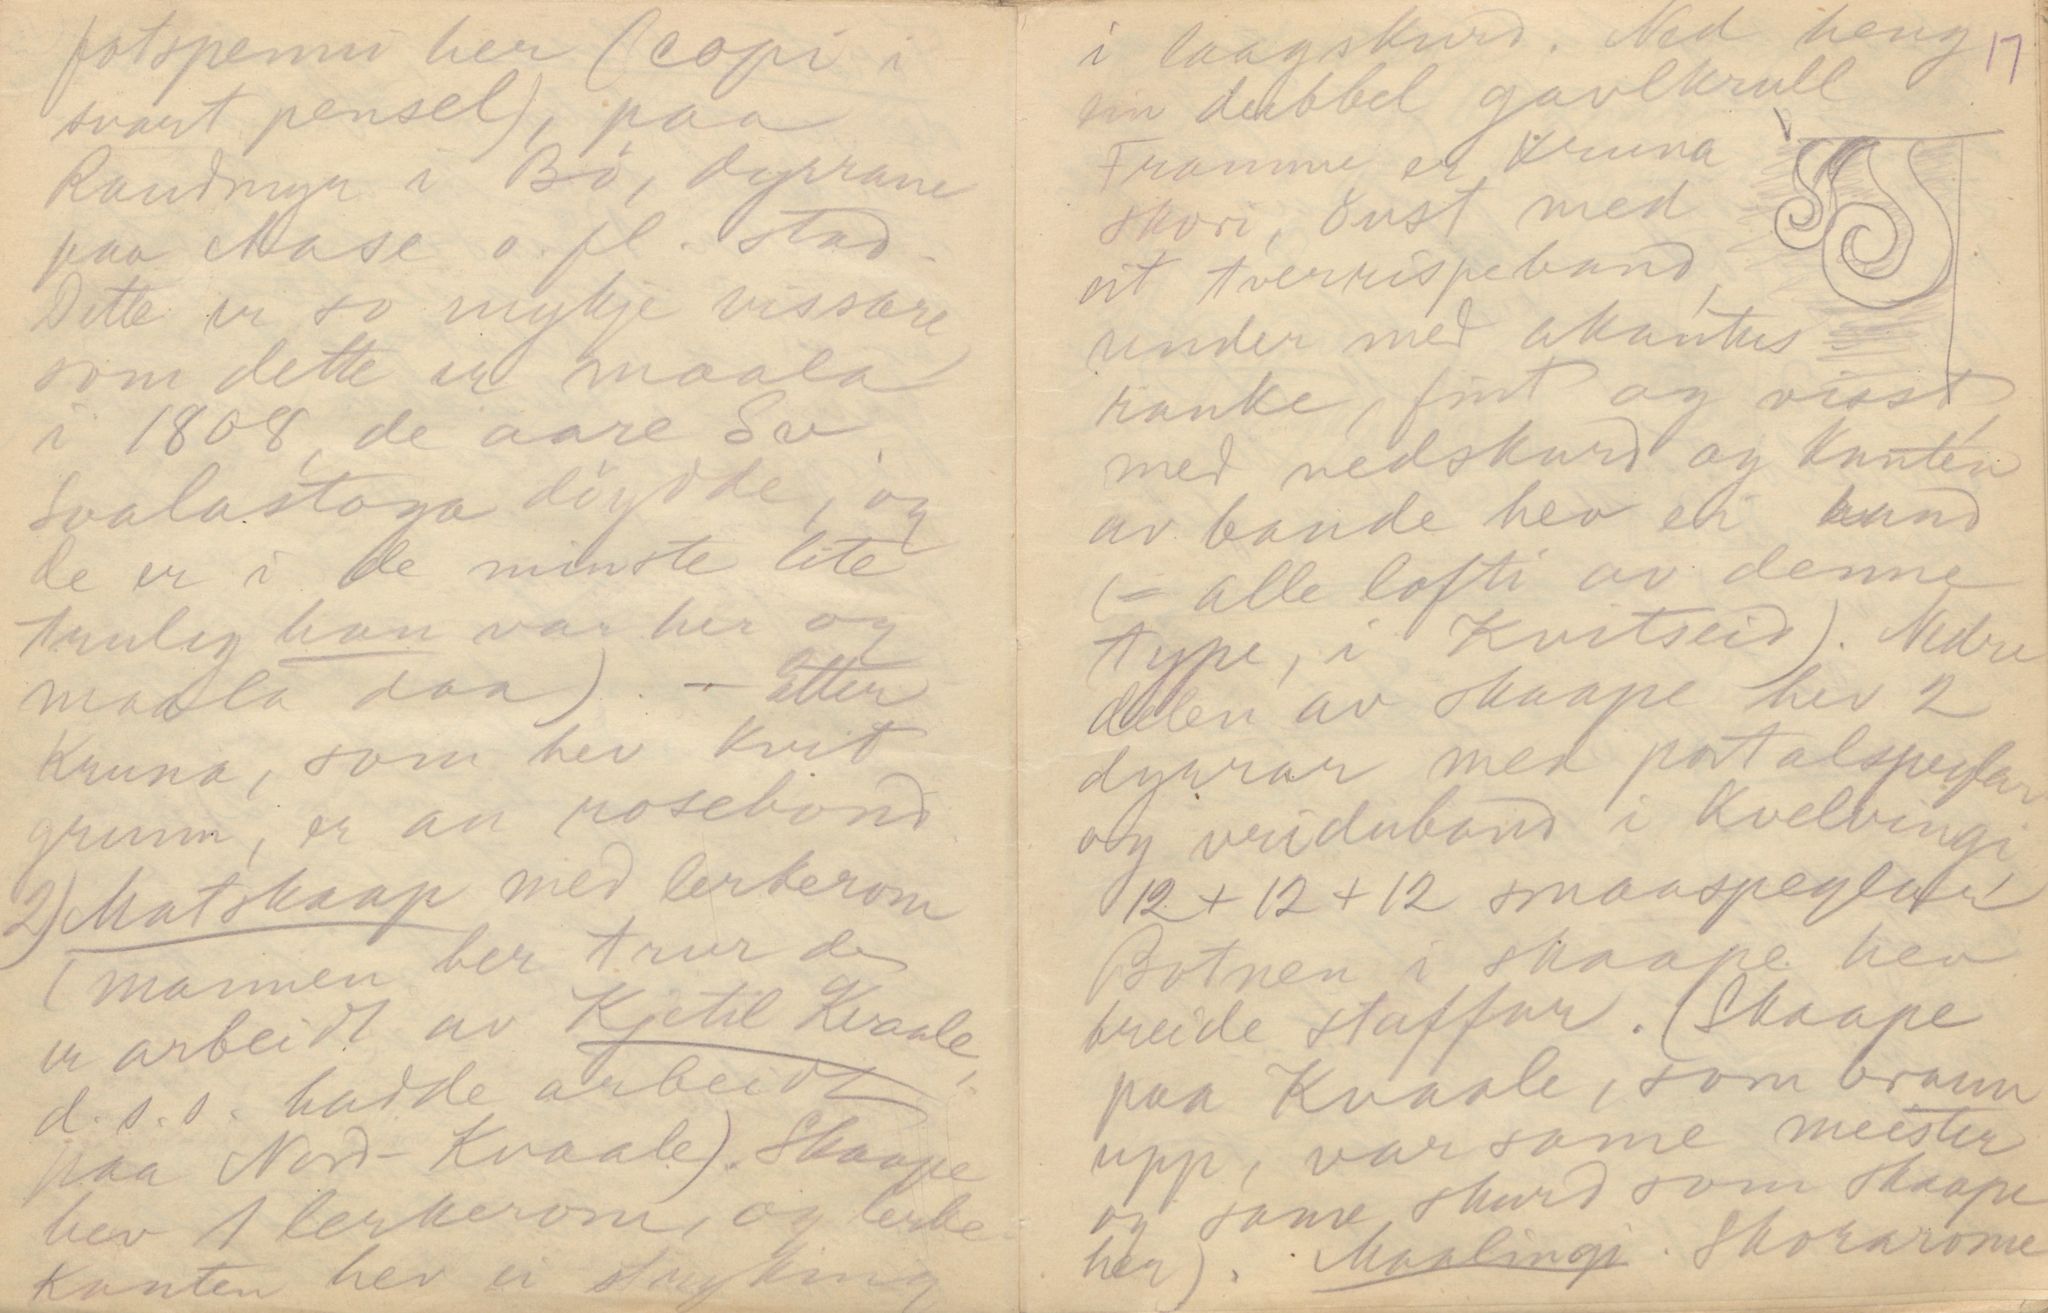 fotspenni her (copi i
svart pensel), paa
Raudmyr i Bö, dyrrane
paa Aase o. fl. stad.
Dette er so mykje vissare
som dette er maala
i 1808, de aare Sv.
Svalastoga döydde, og
de er i de minste lite
truleg han var her og
maala daa). – Etter
Kruna, som hev kvit
grunn, er au rosebord.
2) Matskaap med lerkerom
(mannen her trur de
er arbeidt av Kjetil Kvaale,
d.s.s. hadde arbeidt
paa Nord-Kvaale). Skaape
hev 1 lerkerom, og lerke-
kanten hev ei stryking
i laagskurd. Ned heng 17
ein dubbel gavlkrull
Framme er Kruna
skori, övst med
eit tverrispeband,
under med akantus
ranke, fint og visst,
med nedskurd og Kanten
av bande hev ei rand
(= alle lofti av denne
type, i Kvitseid). Nedre
delen av skaape hev 2
dyrrar med portalspeglar
og vriduband i Kvelvingi,
12 + 12 + 12 smaaspeglar.
Botnen i skaape hev
breide staffur. (Skaape
paa Kvaale, som brann
upp, var same meister
og same skurd som skaape
her). Maalingi. Skorarome